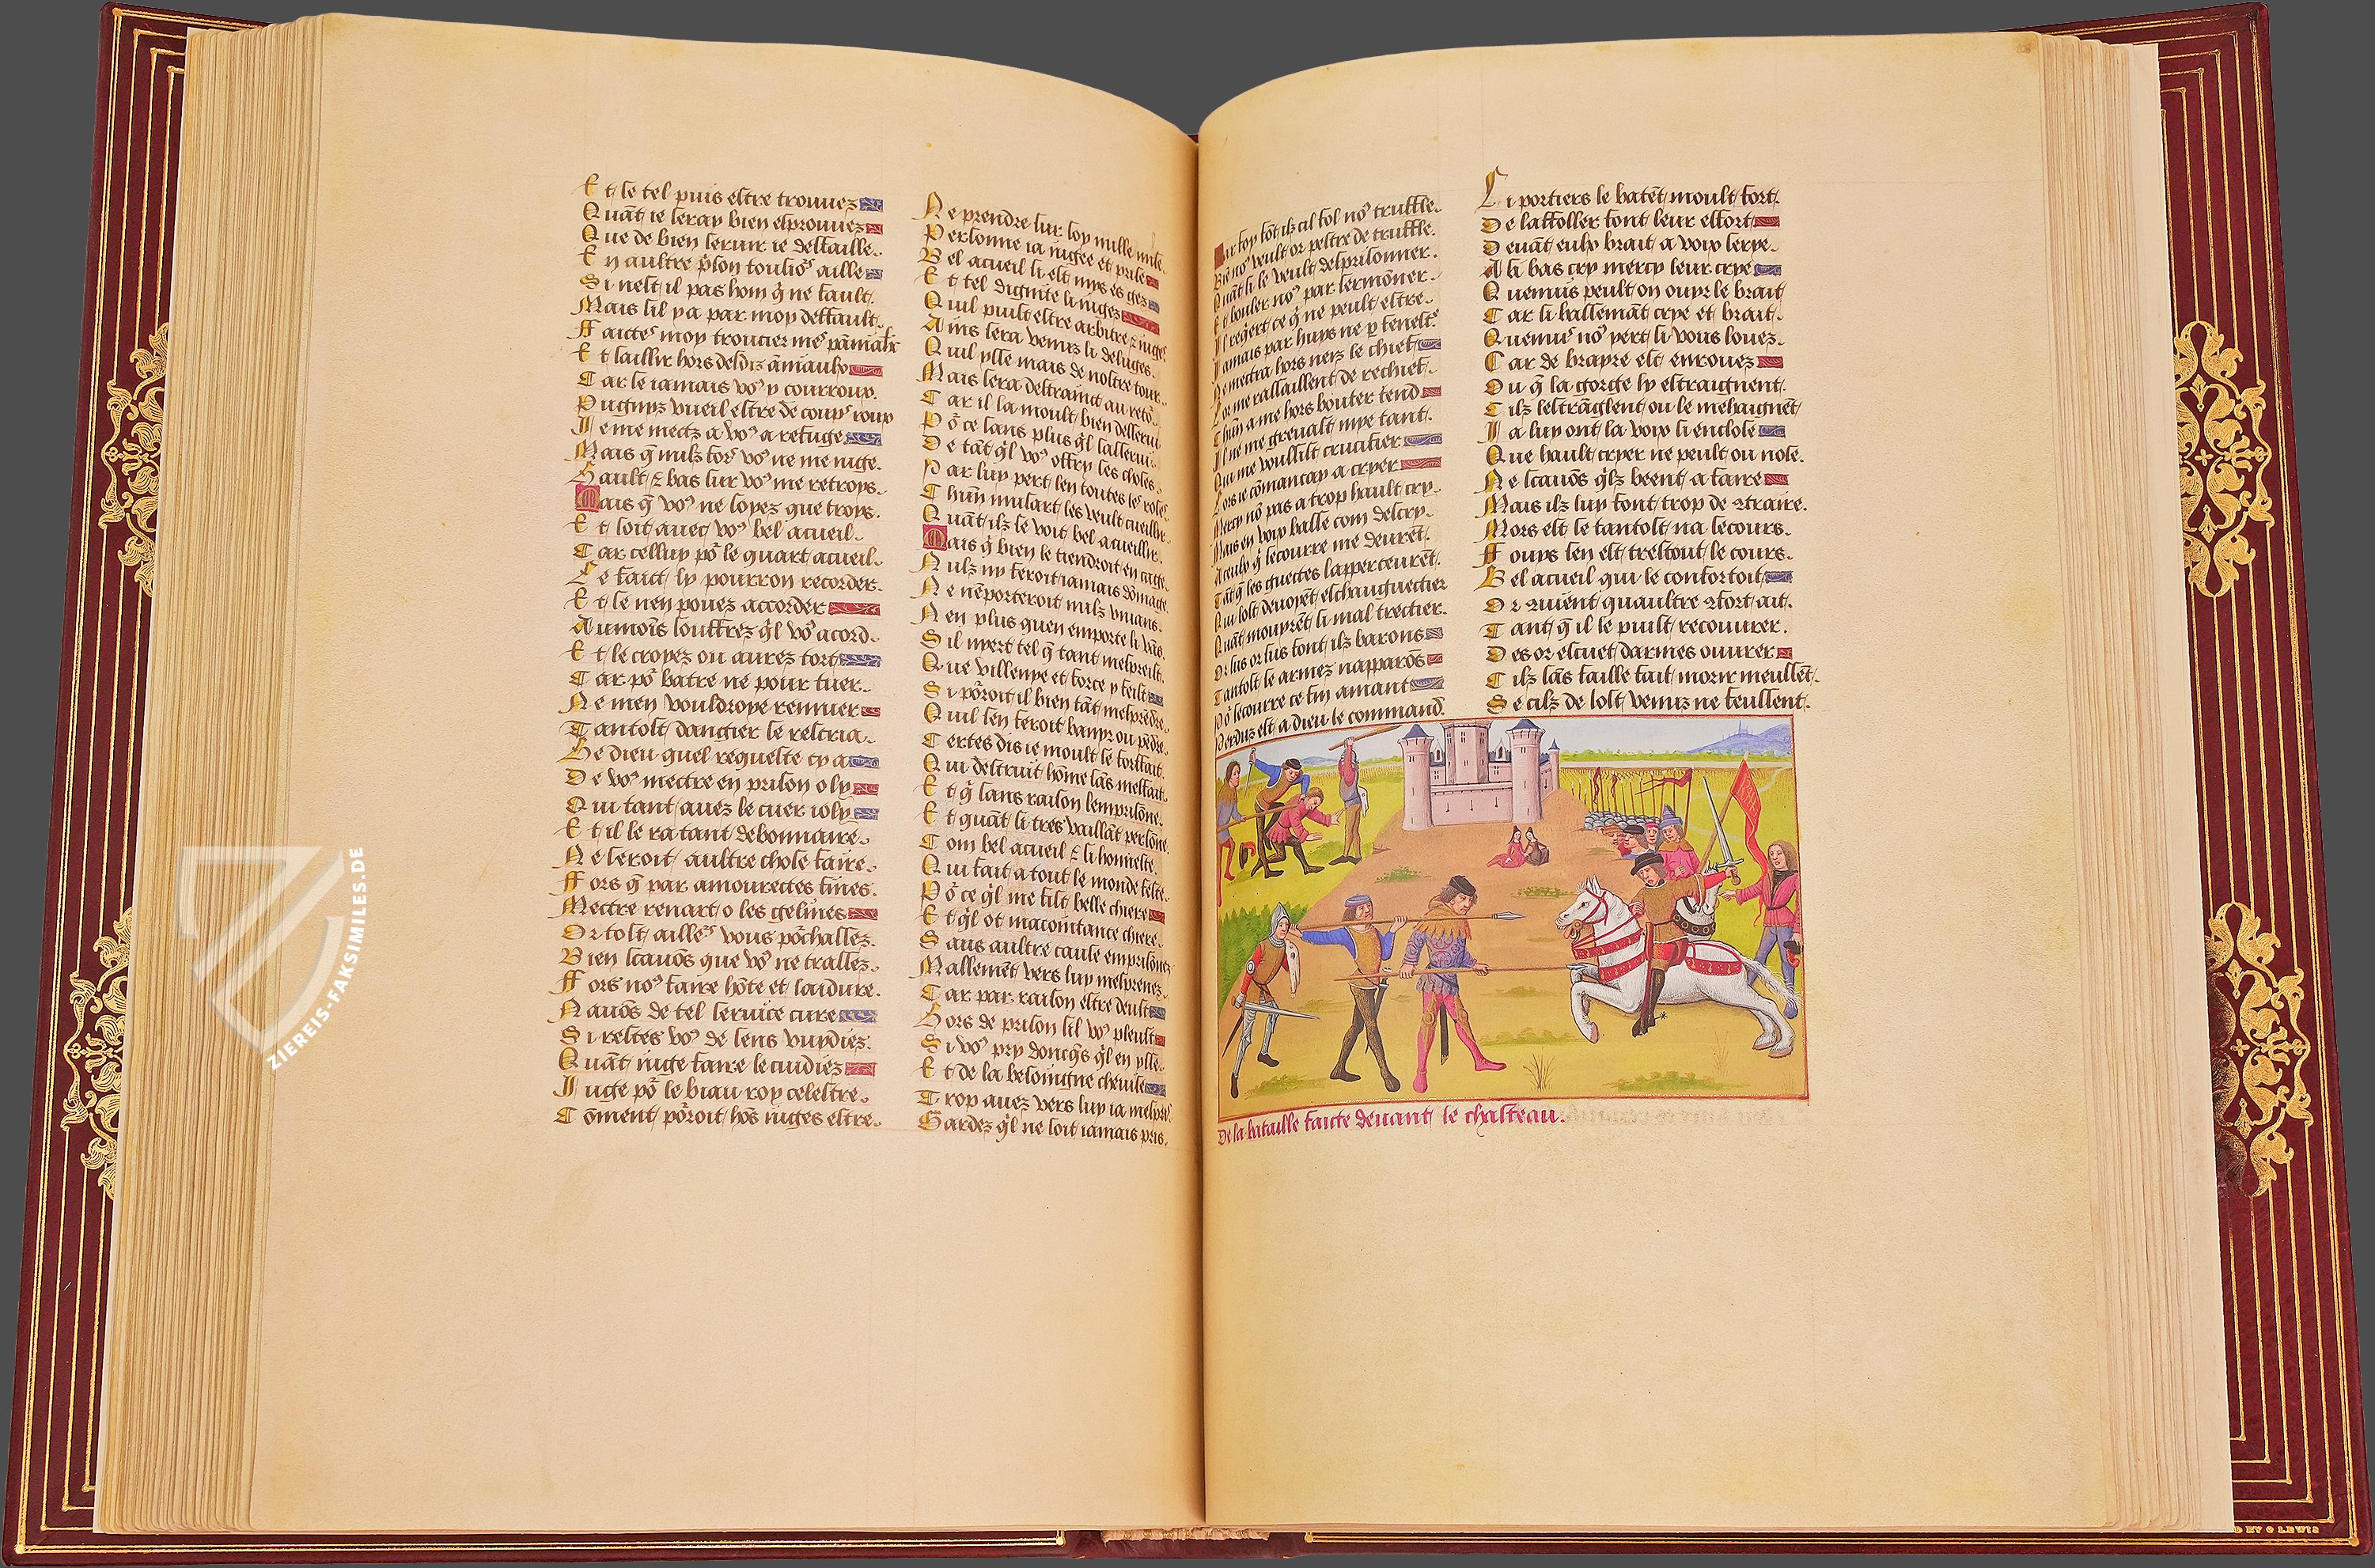 Et se tel puis estre trouuez
Quāt ie seray bien esprouuez
Que de bien seruir ie deffaille
En aultre p̄son touſio⁹ aille
Si nest il pas hom q̄ ne fault
Mais sil y a par moy deffault
Et saillir hors desdiz āniaulx
Car se iamais vo⁹ y courrouy
Pugnyz vueil estre de coup⁹ roup
Ie me mectz a vo⁹ a refuge
Mais q̄ nulz fors vo⁹ ne me iuge
Hault ⁊ bas sur vo⁹ me retroys
Mais q̄ vo⁹ ne soyez que troys
Et soit auec vo⁹ bel acueil
Car celluy po² le quart acueil
Le faict sy pourron recorder
Et se nen pouez accorder
Aumoīs souffrez q̄l vo⁹ acord
Et se croyez ou aurez tort
Car po² batre ne pour tuer
Ne men vouldroye remuer
Tantost dangier se rescria
He dieu quel requeste cy a
De vo⁹ mectre en prison o ly
Qui tant auez le cuer ioly
Et il le ra tant debonnaire
Ne seroit aultre chose faire
Fors q̄ par amourectes fines
Mectre renart o les gelines
Or tost ailleꝰ vous po²challez
Bien scauōs que vo⁹ ne trassez
Fors no⁹ faire hōte et laidure
Nauōs de tel seruice cure
Si restes vo⁹ de sens vuydiez
Quāt iuge faire le cuidiez
Iuge po² le biau roy celestre
Cōment po²roit hōs iuges estre
Ne prendre sur soy nulle mise
Personne ia iugee et prise
Bel acueil si est mys es gez
Et tel dignite li iugez
Quil puist estre arbitre ⁊ iuge
Ains sera venuz li deluges
Quil ysse mais de nostre tour
Mais sera destrainct au reto²
Car il la moult bien desserui
Po² ce sans plus q̄l sasserui
De tāt q̄l vo⁹ offry les choses
Par luy pert sen toutes les roses
Chūn musart les veult cueillir
Quāt ilz se voit bel acueillir
Mais q̄ bien le tiendroit en cage
Nulz ny feroit iamais dōmage
Ne nēporteroit nulz viuans
Nen plus quen emporte li vās
Sil nyert tel q̄ tant mespreist
Que villenye et force y feist
Si po²roit il bien tāt mesprēdre
Quil sen feroit banyr ou pēdre
Certes dis ie moult se forffait
Qui destruit hōme sās meffait
Et q̄ sans raison lemprisōne
Et quāt si tres vaillāt persōne
Com bel acueil ⁊ si honneste
Qui fait a tout le monde feste
Po² ce q̄l me fist belle chiere
Et q̄l ot macointance chiere
Sans aultre cause emprisōnez
Mallemēt vers luy mesprenez
Car par raison estre deust
Hors de prison sil vo⁹ pleust
Si vo⁹ pry donc̄s q̄l en ysse
Et de la besoingne cheuisse
Trop auez vers luy ia mespris
Gardez q̄l ne soit iamais pris
Par foy fōt ilz cil fol no⁹ truffle
Biē no⁹ veult or pestre de truffle
Quāt si le veult desprisonner
Et bouler no⁹ par sermōner
Il req̄ert ce q̄ ne peult estre
Iamais par huys ne p fenest²
Ne mectra hors neiz le chief
Lor me rassaillent de rechief
Chūn a me hors bouter tend
Il ne me greuast mye tant
Qui me voulsist crucifier
Lors ie cōmancay a cryer
Mercy no⁹ pas a trop hault cry
Mais en voix basse com descry
A ceulx q̄ secourre me deurēt
Tāt q̄ les guectes lapperceurēt
Qui lost deuoyēt eschauguectier
Quāt mouyrēt si mal trectier
Or sus or sus font ilz barons
Tantost se armez napparōs
Po² secourre ce fin amant
Perduz est a dieu le command
Li portiers le batēt moult fort
De laffoller font leur effort
Deuāt eulx brait a voix serye
A si bas cry mercy leur crye
Quenuis peult on ouyr le brait
Car si bassemāt crye et brait
Quenuis no⁹ pert si vous louez
Car de brayre est enrouez
Ou q̄ la gorge ly estraignent
Cilz lestrāglent ou le mehaignēt
Ia luy ont la voix si enclose
Que hault cryer ne peult ou nose
Ne scauōs q̄lz beent a faire
Mais ilz luy font trop de ꝯtraire
Mors est se tantost na secours
Fouys sen est trestout le cours
Bel acueil qui le confortoit
Or ꝯuiēt quaultre ꝯfort ait
Tant q̄ il se puist recouurer
Des or estuet darmes ouurer
Cilz sās faille fait morir meussēt
Se cilz de lost venuz ne feussent
De la bataille faicte deuant le chasteau
ZIEREIS-FAKSIMILES.DE